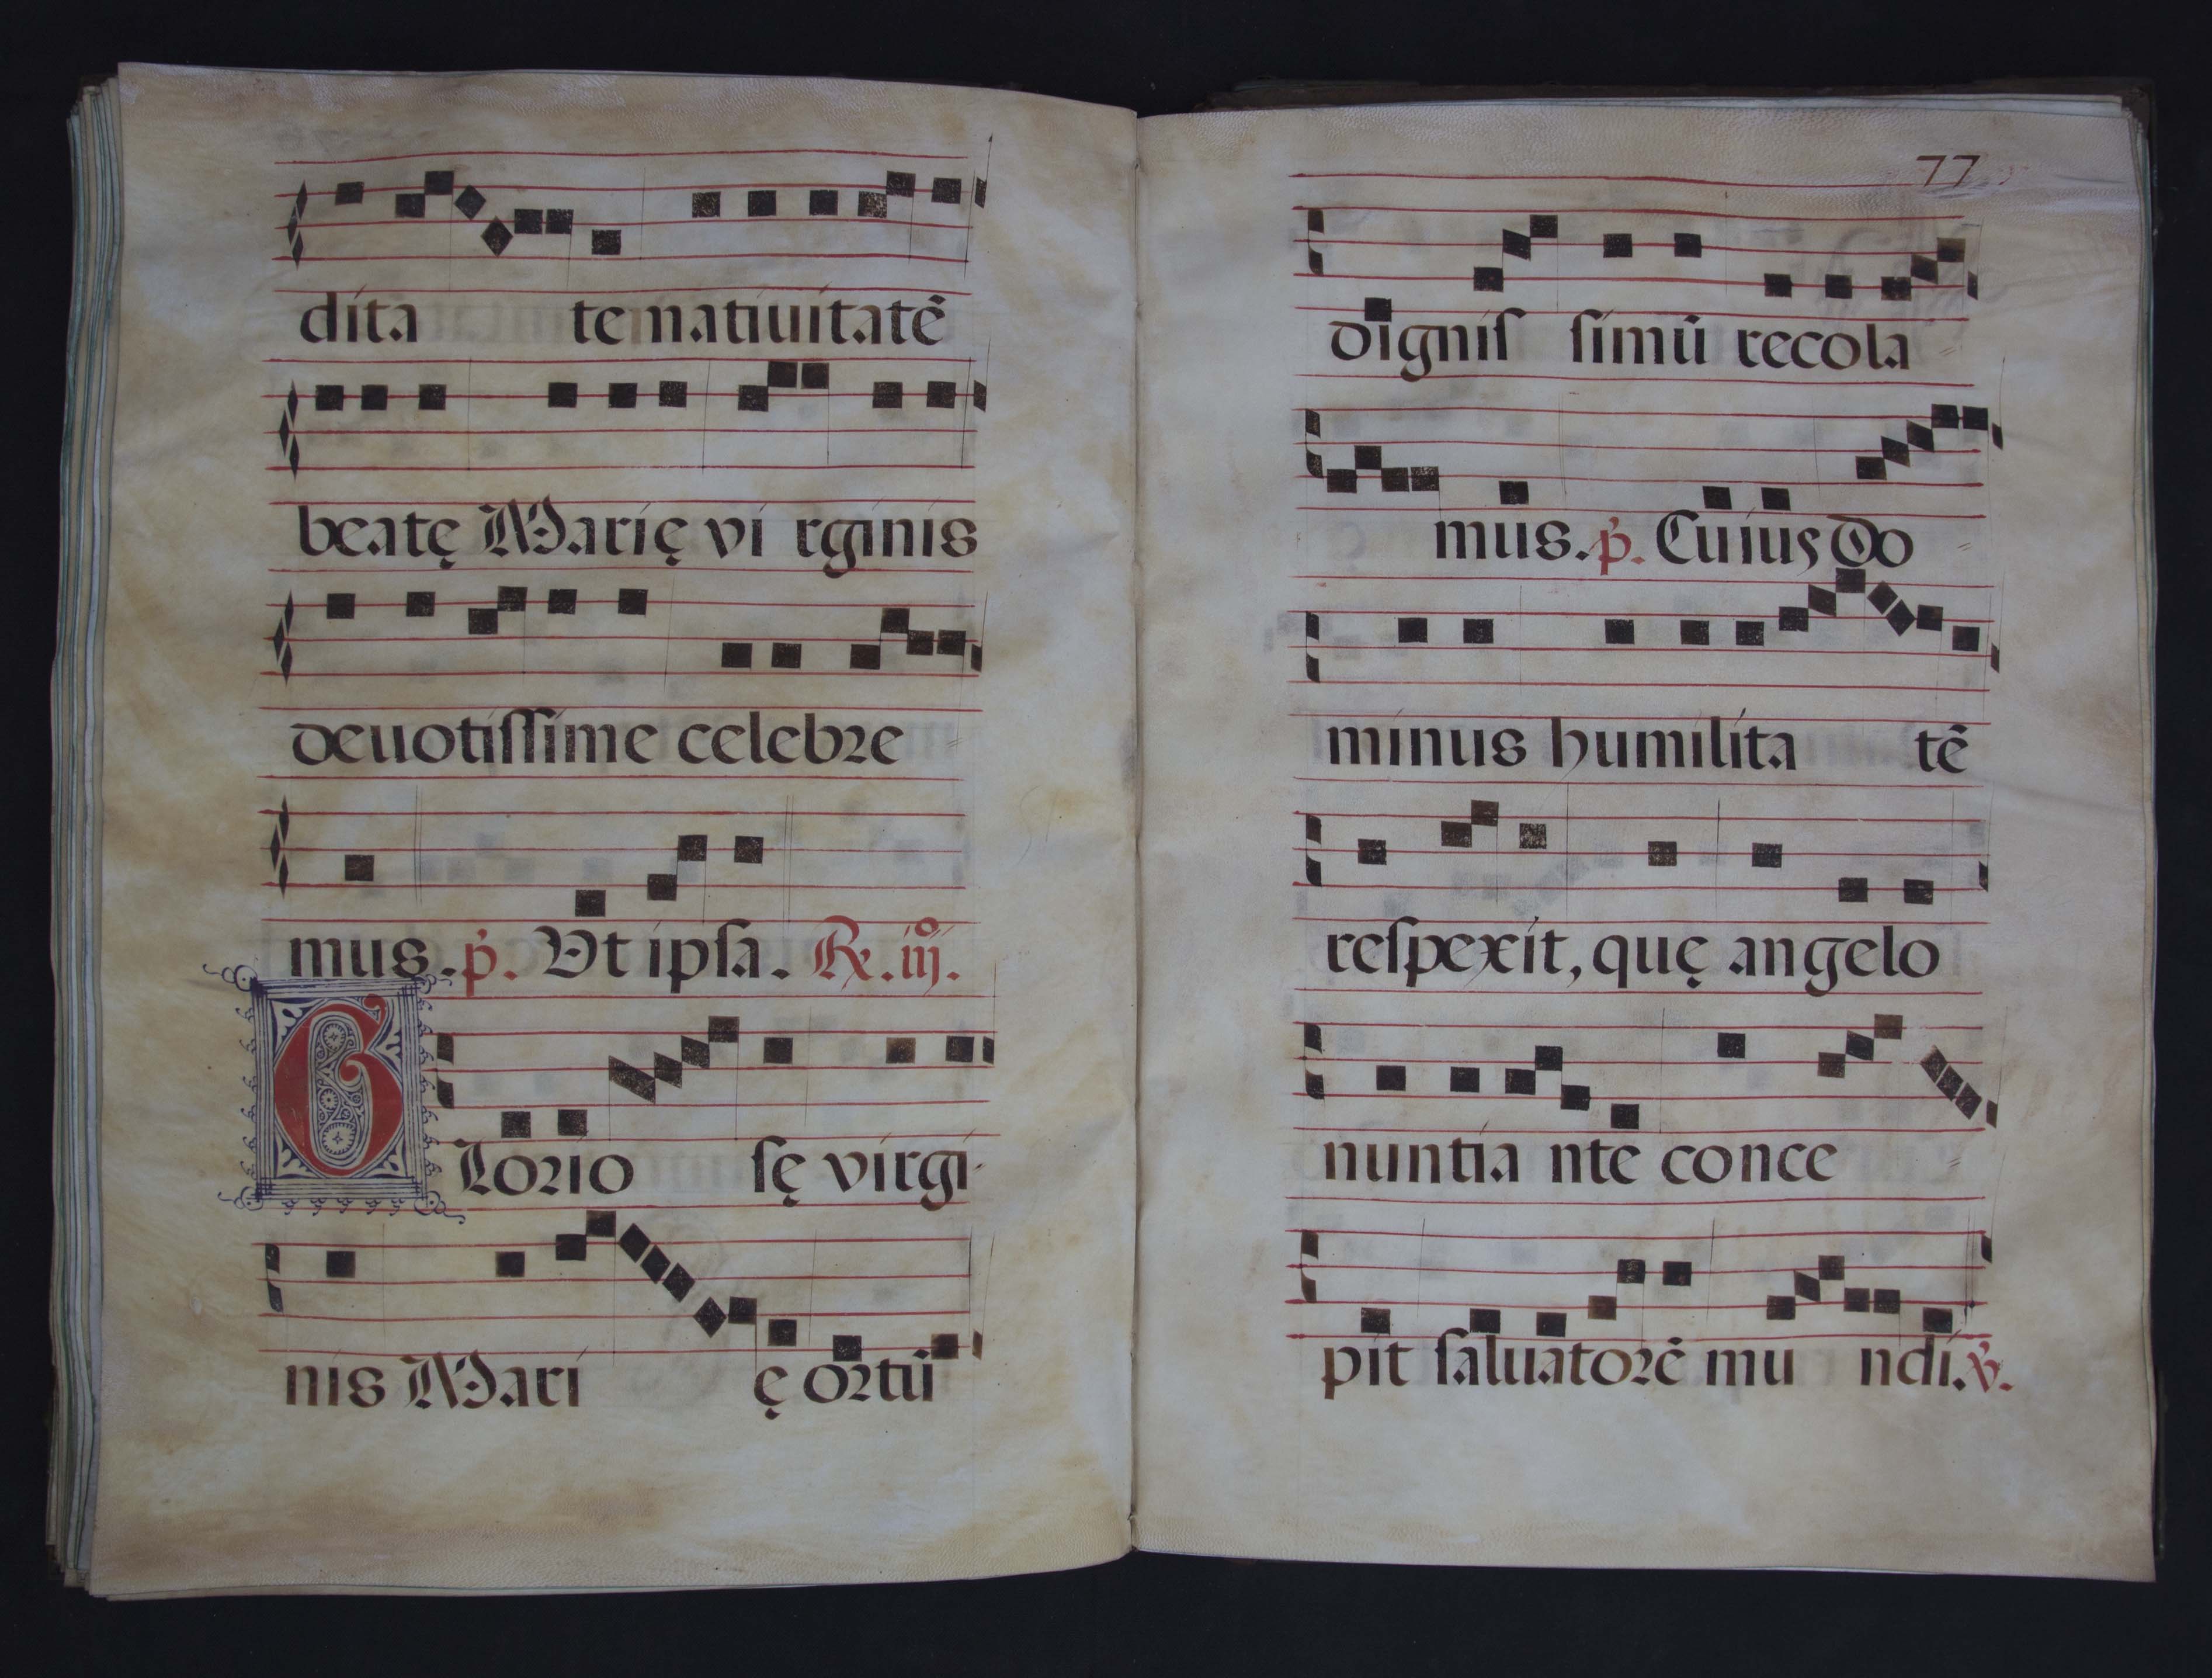 dita te natiuitatē
beatę Marię vi rginis
deuotiſſime celebre
mus. p̓. Vt ipſa. ℟. iiij.
G Lorio ſę virgi
nis Mari ę ortū
77
digniſ ſimū recola
mus. p̓. Cuius Do
minus humilita tē
reſpexit, quę angelo
nuntia nte conce
pit ſaluatorē mu ndi. ℣.